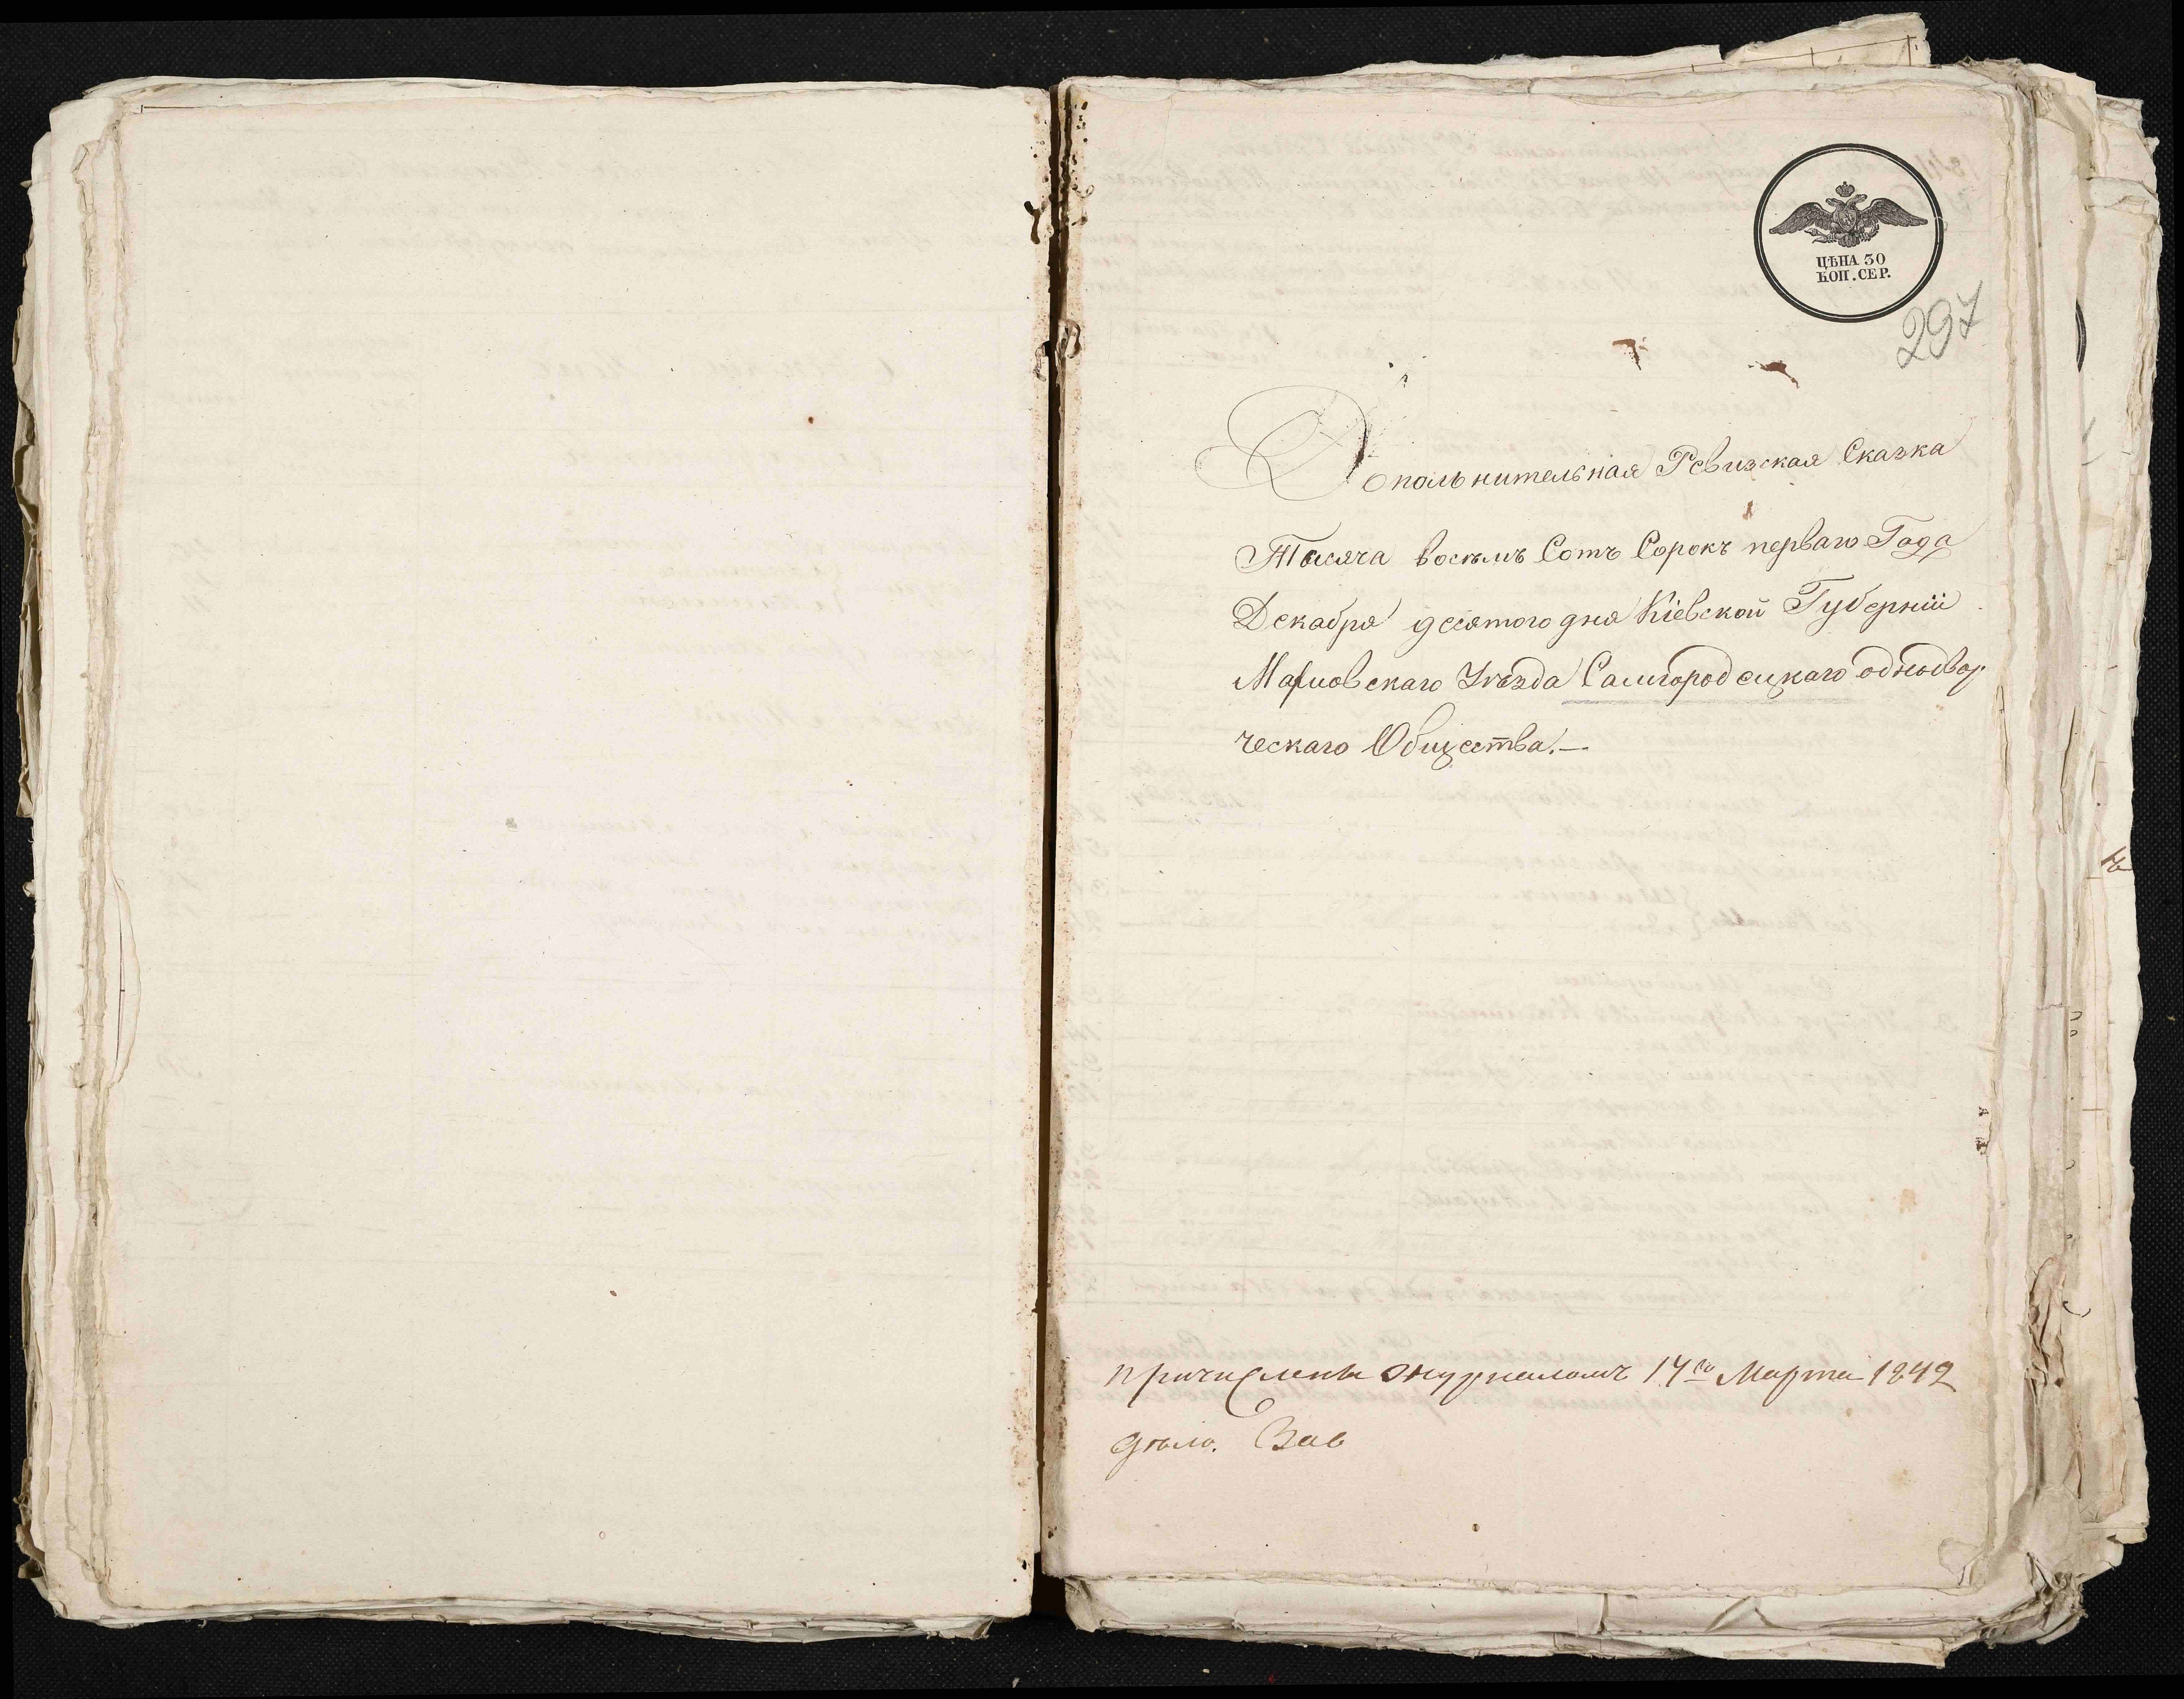 ЦѢНА 30
КОП. СЕР.
297
Дополнительная Ревизская Сказка
Тысяча восѣмъ Сотъ Сорокъ перваго Года
Декабря десятого дня Кіевской Губерніи
Махновскаго Уѣзда Самгородецкаго однодвор
ческаго Общества.—
причислены журналомъ 17го Марта 1842
дѣло.